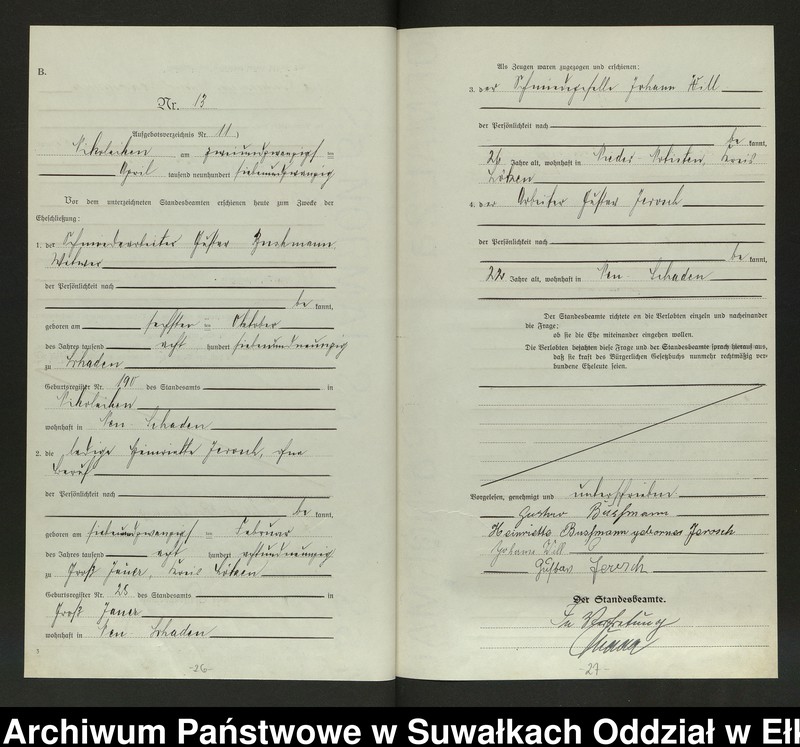 B.
Nr. 13
Aufgebotsverzeichnis Nr. 11)
Nikolaiken am zweiundzwanzigsten
April tausend neunhundert siebenundzwanzig
Vor dem unterzeichneten Standesbeamten erschienen heute zum Zwecke der
Eheschließung:
1. der Schmiedearbeiter Gustav Buchmann
Witwer
der Persönlichkeit nach
be kannt,
geboren am sechsten Oktober
des Jahres tausend acht hundert siebenundneunzig
zu Schaden
Geburtsregister Nr. 190 des Standesamts in
Nikolaiken
wohnhaft in Neu-Schaden
2. die ledige Henriette Jerosch, ohne
Beruf
der Persönlichkeit nach
be kannt,
geboren am siebenundzwanzigsten Februar
des Jahres tausend acht hundert achtundneunzig
zu Groß Jauer, Kreis Lötzen
Geburtsregister Nr. 25 des Standesamts in
Groß Jauer
wohnhaft in Neu-Schaden
3
-26-
Als Zeugen waren zugezogen und erschienen:
3. der Schmiedegeselle Johann Will
der Persönlichkeit nach
be kannt,
26 Jahre alt, wohnhaft in Kreis
Lötzen
4. der Arbeiter Gustav Jerosch
der Persönlichkeit nach
be kannt,
22 Jahre alt, wohnhaft in Neu-Schaden
Der Standesbeamte richtete an die Verlobten einzeln und nacheinander
die Frage:
ob sie die Ehe miteinander eingehen wollen.
Die Verlobten bejahten diese Frage und der Standesbeamte sprach hierauf aus,
daß sie kraft des Bürgerlichen Gesetzbuchs nunmehr rechtmäßig ver-
bundene Eheleute seien.
Vorgelesen, genehmigt und unterschrieben
Gustav Buchmann
Heinriette Buchmann geborenes Jerosch
Johann Will
Gustav Jerosch
Der Standesbeamte.
In Vertretung
-27-
Archiwum Państwowe w Suwałkach Oddział w Ełk